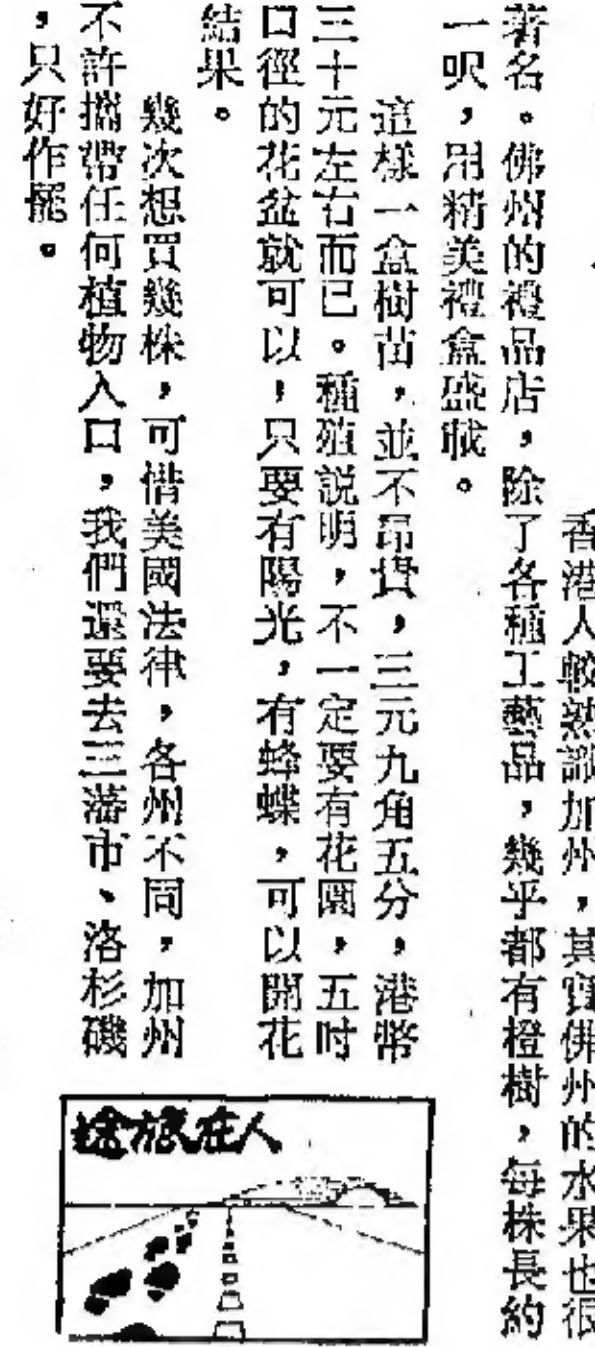 香港人較熟識加州，其實佛州的水果也很
著名。佛州的禮品店，除了各種工藝品，幾乎都有橙樹，每株長約
一呎，用精美禮盒盛載。
這樣一盒樹苗，並不昂貴，三元九角五分，港幣
三十元左右而已。種殖説明，不一定要有花園，五吋
口徑的花盆就可以，只要有陽光，有蜂蝶，可以開花
結果。
幾次想買幾株，可惜美國法律，各州不同，加州
不許攜帶任何植物入口，我們還要去三藩市、洛杉磯
，只好作罷。
人在旅途